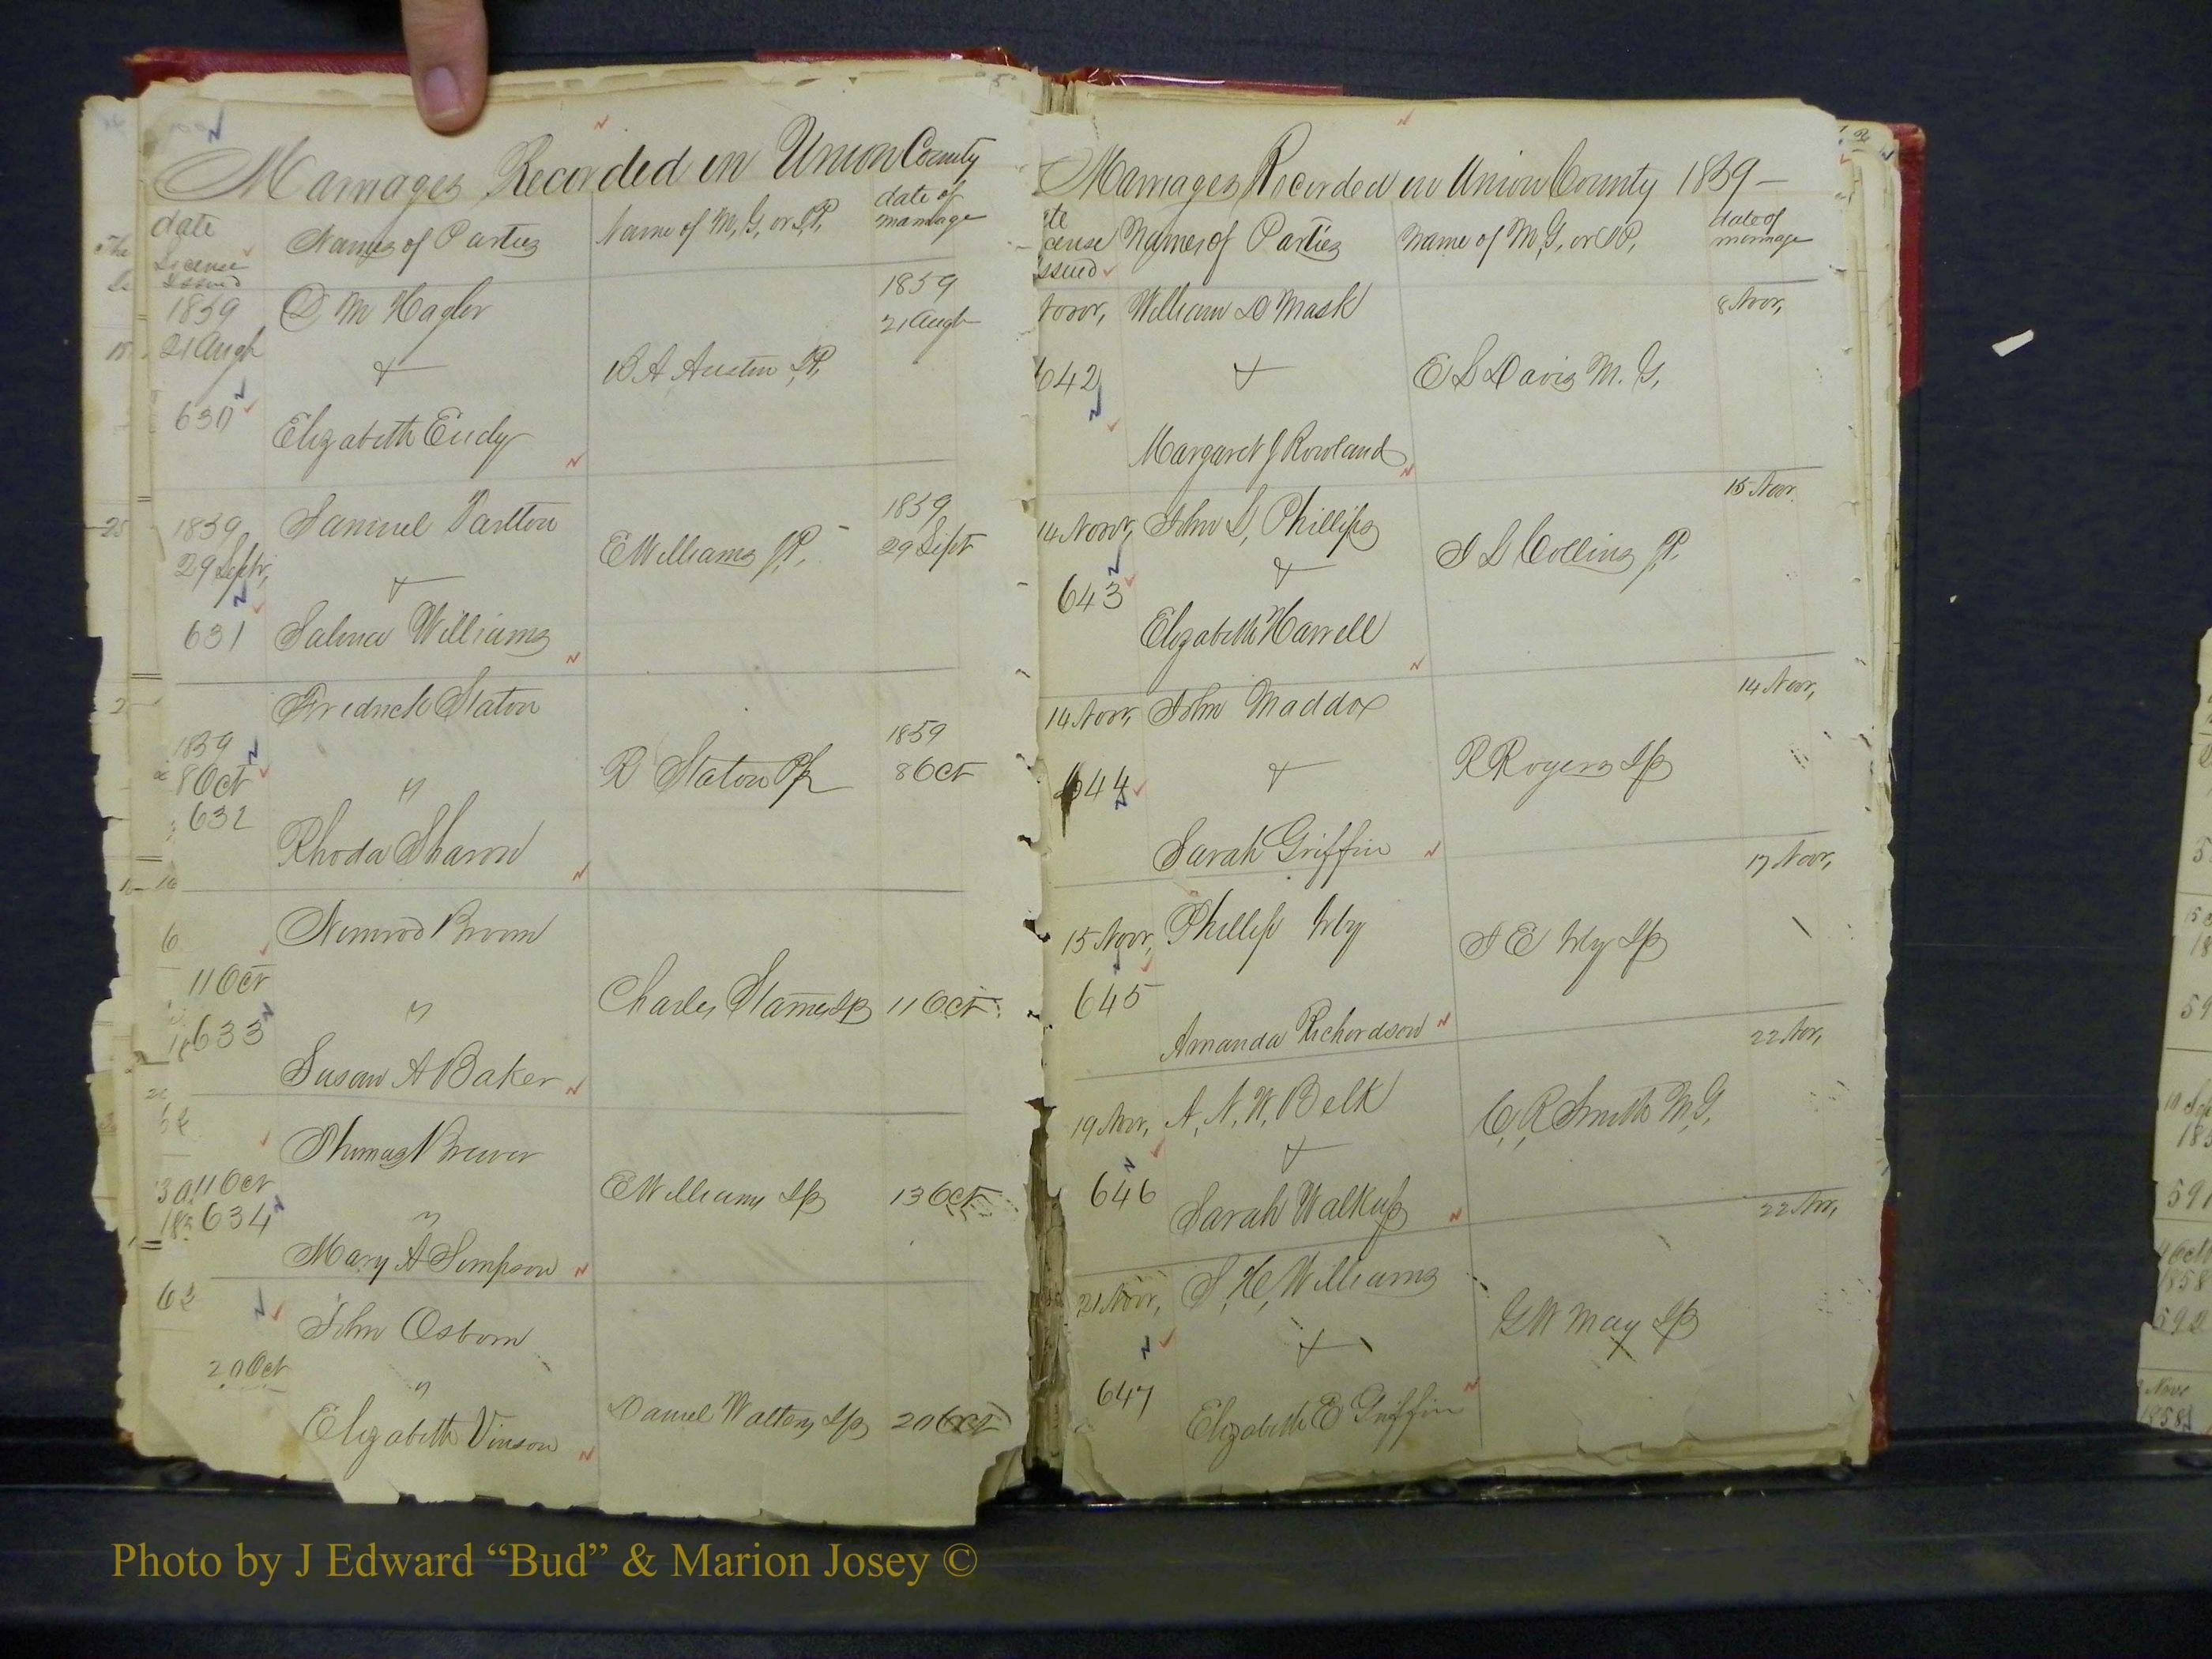 Marriages Recorded in Union County
date License Issued
Names of Parties
Name of M, G, or J P,
date of marriage
1859
21 Augt
630
D M Hagler
&
Elizabeth Eudy
B A Austin J P,
1859
21 Augt
1859
29 Septr,
631
Samuel Tarlton
&
Salina Williams
E Williams J P,
1859
29 Sept
1859
8 Oct
632
Fredrick Staton
"
Rhoda Sharon
R Staton J P
1859
8 Oct
11 Oct
633
Nimrod Broom
"
Susan A Baker
Charles Starnes J P
11 Oct
11 Oct
634
Thomas Brewer
"
Mary A Simpson
E Williams J P
13 Oct
20 Oct
John Osborn
"
Elizabeth Vinson
Daniel Walters J P
20 Oct
Marriages Recorded in Union County 1859 –
Names of Parties
Name of M, G, or J P,
date of marriage
642
William D Mask
&
Margaret J Rowland
E L Davis M. G.
8 Nov,
14 Novr,
643
John S, Phillips
&
Elizabeth Harrell
J P,
15 Novr
14 Novr,
644
John Maddox
&
Sarah Griffin
R Rogers J P
14 Novr,
15 Novr,
645
Phillip Irby
Amanda Richardson
J E Irby J P
17 Novr,
19 Nov,
646
A, N, W, Belk
&
Sarah Walkup
C, R, Smith M, G,
22 Nov,
21 Novr,
647
S, H, Williams
&
Elizabeth E Griffin
G W May J P
22 Nov,
Photo by J Edward “Bud” & Marion Josey ©